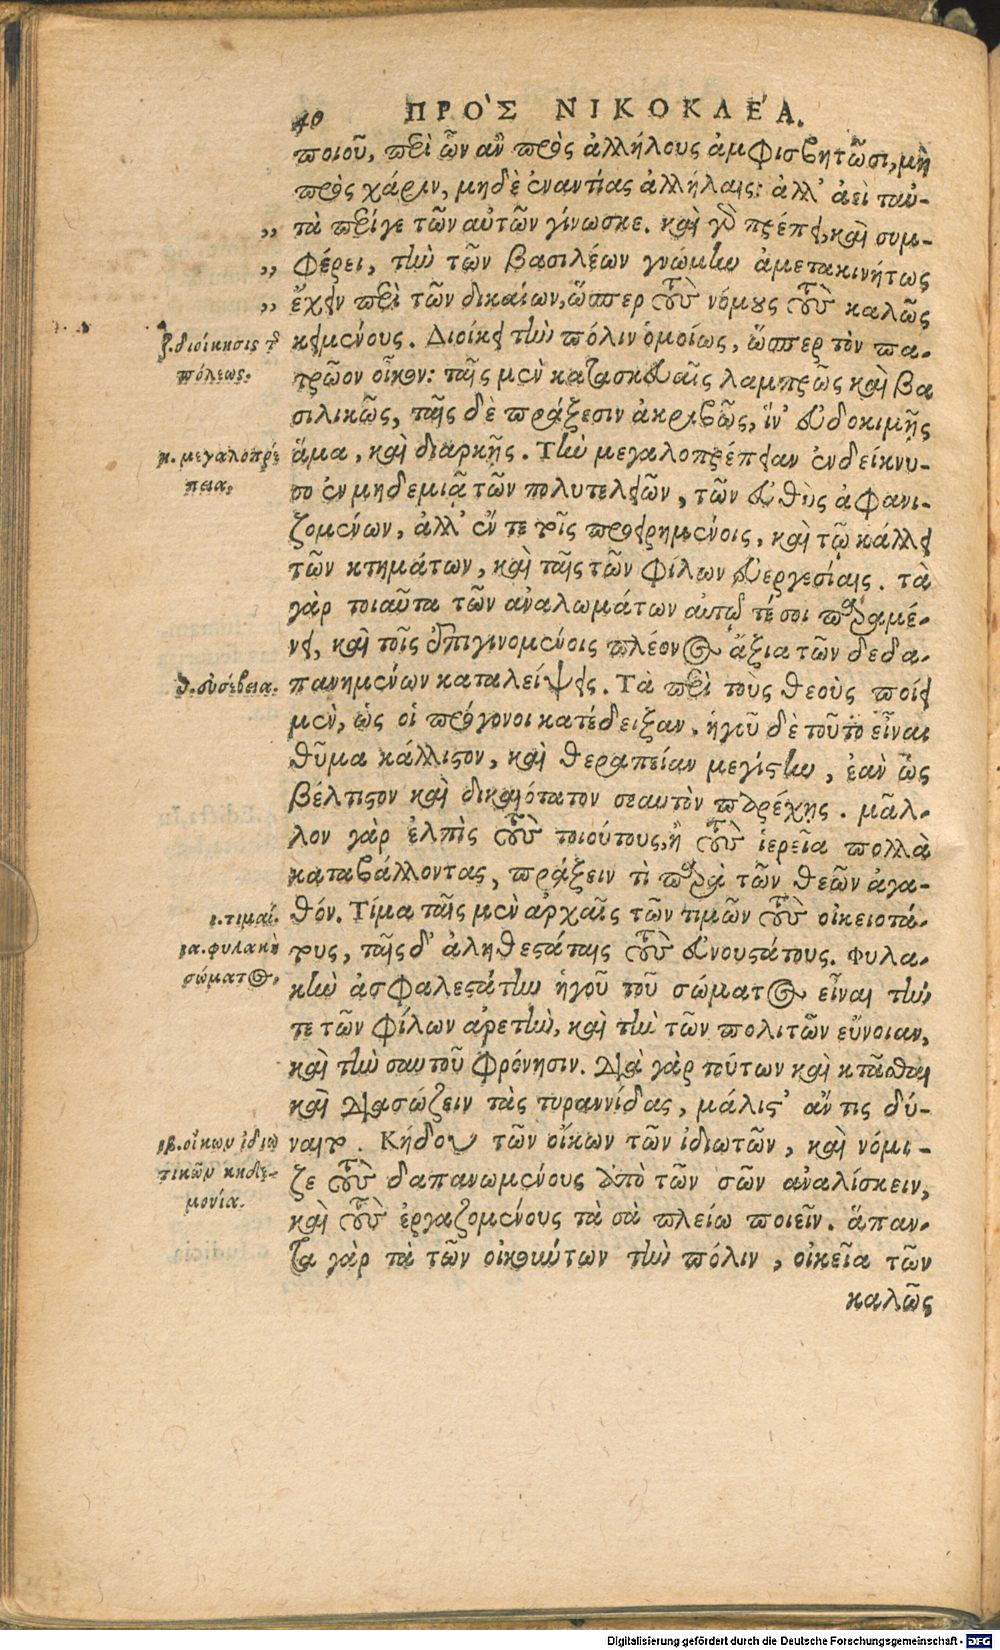 40 ΠΡΟ`Σ ΝΙΚΟΚΛΕ´Α.
ποιοῦ, περὶ ὧν ἂν πρὸς ἀλλήλους ἀμφισβητῶσι, μὴ
πρὸς χάριν, μηδὲ ἐναντίας ἀλλήλαις: ἀλλ' ἀεὶ ταὐ-
„ τὰ περί γε τῶν αὐτῶν γίνωσκε. καὶ γὰρ πρέπει, καὶ συμ-
„ φέρει, τὴν τῶν βασιλέων γνώμην ἀμετακινήτως
„ ἔχειν περὶ τῶν δικαίων, ὥσπερ τοὺς νόμους τοὺς καλῶς
ζ. διοίκησις τῆς
πόλεως.
κειμένους. Διοίκει τὴν πόλιν ὁμοίως, ὥσπερ τὸν πα-
τρῷον οἶκον: ταῖς μὲν κατασκευαῖς λαμπρῶς καὶ βα
σιλικῶς, ταῖς δὲ πράξεσιν ἀκριβῶς, ἵν' εὐδοκιμῇς
η. μεγαλοπρέ
πεια.
ἅμα, καὶ διαρκῇς. Τὴν μεγαλοπρέπειαν ἐνδείκνυ-
σο ἐν μηδεμιᾷ τῶν πολυτελειῶν, τῶν εὐθὺς ἀφανι-
ζομένων, ἀλλ' ἔν τε τοῖς προειρημένοις, καὶ τῷ κάλλει
τῶν κτημάτων, καὶ ταῖς τῶν φίλων εὐεργεσίαις. τὰ
γὰρ τοιαῦτα τῶν ἀναλωμάτων αὐτῷ τέ σοι παραμέ-
νει, καὶ τοῖς ἐπιγινομένοις πλέονος ἄξια τῶν δεδα-
θ. εὐσέβεια.
πανημένων καταλείψεις. Τὰ περὶ τοὺς θεοὺς ποίει
μὲν, ὡς οἱ πρόγονοι κατέδειξαν. ἡγοῦ δὲ τοῦτο εἶναι
θῦμα κάλλιστον, καὶ θεραπείαν μεγίστην, ἐὰν ὡς
βέλτιστον καὶ δικαιότατον σεαυτὸν παρέχῃς. μᾶλ-
λον γὰρ ἐλπὶς τοὺς τοιούτους, ἢ τοὺς ἱερεῖα πολλὰ
καταβάλλοντας, πράξειν τὶ παρὰ τῶν θεῶν ἀγα-
ι. τιμαί.
ια. φυλακὴ
σώματος.
θόν. Τίμα ταῖς μὲν ἀρχαῖς τῶν τιμῶν τοὺς οἰκειοτά-
τους, ταῖς δ' ἀληθεστάταις τοὺς εὐνουστάτους. Φυλα-
κὴν ἀσφαλεστάτην ἡγοῦ τοῦ σώματος εἶναι τήν
τε τῶν φίλων ἀρετὴν, καὶ τὴν τῶν πολιτῶν εὔνοιαν,
καὶ τὴν σαυτοῦ φρόνησιν. Διὰ γὰρ τούτων καὶ κτᾶσθαι
καὶ διασώζειν τὰς τυραννίδας, μάλιστ' ἄν τις δύ-
ιβ. οἴκων ἰδιω
τικῶν κηδε-
μονία.
ναιτο. Κήδου τῶν οἴκων τῶν ἰδιωτῶν, καὶ νόμι-
ζε τοὺς δαπανωμένους ἀπὸ τῶν σῶν ἀναλίσκειν,
καὶ τοὺς ἐργαζομένους τὰ σὰ πλείω ποιεῖν. ἅπαν-
τα γὰρ τὰ τῶν οἰκούντων τὴν πόλιν, οἰκεῖα τῶν
καλῶς
Digitalisierung gefördert durch die Deutsche Forschungsgemeinschaft - DFG